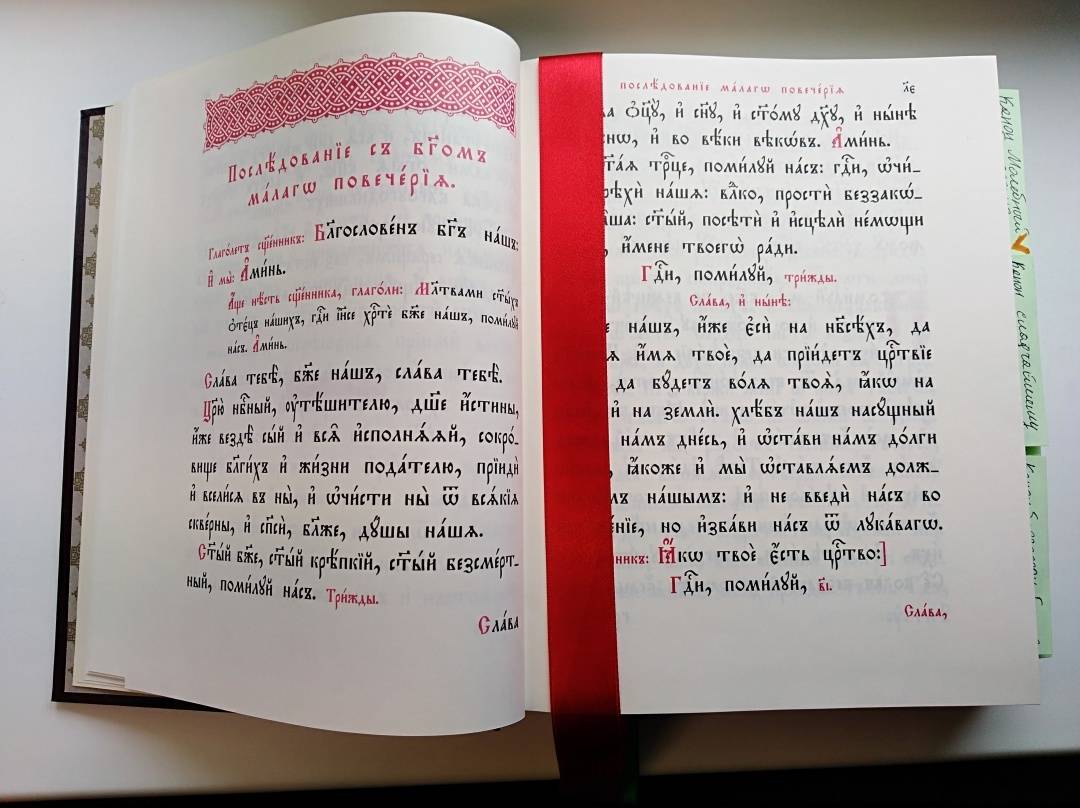 Послѣ́дованїе съ бг҃омъ
ма́лагѡ повече́рїѧ.
Глаго́летъ сщ҃е́нникъ: Блгⷭ҇ове́нъ бг҃ъ на́шъ:
И҆ мы̀: А҆ми́нь.
А҆́ще нѣ́сть сщ҃е́нника, глаго́ли: Мл҃твами ст҃ы́хъ
ѻ҆тє́цъ на́шихъ, гдⷭ҇и і҆и҃се хрⷭ҇тѐ бж҃е на́шъ, поми́лꙋй
на́съ. А҆ми́нь.
Сла́ва тебѣ̀, бж҃е на́шъ, сла́ва тебѣ̀.
Цр҃ю̀ нбⷭ҇ный, ᲂу҆тѣ́шителю, дш҃е и҆́стины,
и҆́же вездѣ̀ сы́й и҆ всѧ̑ и҆сполнѧ́ѧй, сокро́-
вище бл҃ги́хъ и҆ жи́зни пода́телю, прїидѝ
и҆ всели́сѧ въ ны̀, и҆ ѡ҆чи́сти ны̀ ѿ всѧ́кїѧ
скве́рны, и҆ сп҃сѝ, бл҃же, дꙋ́шы на́шѧ.
Ст҃ы́й бж҃е, ст҃ы́й крѣ́пкїй, ст҃ы́й безсме́рт-
ный, поми́лꙋй на́съ. Три́жды.
Сла́ва
послѣ́дованїе ма́лагѡ повече́рїѧ
л҃є
ва ѻ҆ц҃ꙋ̀, и҆ сн҃ꙋ, и҆ ст҃о́мꙋ дх҃ꙋ, и҆ ны́нѣ
снѡ, и҆ во вѣ́ки вѣкѡ́въ. А҆ми́нь.
ст҃а́ѧ трⷪ҇це, поми́лꙋй на́съ: гдⷭ҇и, ѡ҆чи́-
рѣхѝ на́шѧ: вл҃ко, простѝ беззакѡ́-
а̑ша: ст҃ы́й, посѣтѝ и҆ и҆сцѣлѝ не́мѡщи
, и҆́мене твоегѡ̀ ра́ди.
Гдⷭ҇и, поми́лꙋй, три́жды.
Сла́ва, и҆ ны́нѣ:
е на́шъ, и҆́же є҆сѝ на нб҃сѣ́хъ, да
ѧ и҆́мѧ твоѐ, да прїи́детъ црⷭ҇твїе
да бꙋ́детъ во́лѧ твоѧ̀, ꙗ҆́кѡ на
и҆ на землѝ. хлѣ́бъ на́шъ насꙋ́щный
на́мъ дне́сь, и҆ ѡ҆ста́ви на́мъ до́лги
, ꙗ҆́коже и҆ мы̀ ѡ҆ставлѧ́емъ долж-
мъ на́шымъ: и҆ не введѝ на́съ во
е́нїе, но и҆зба́ви на́съ ѿ лꙋка́вагѡ.
нникъ: Ꙗ҆́кѡ твоѐ є҆́сть црⷭ҇тво:]
Гдⷭ҇и, поми́лꙋй, в҃і.
Сла́ва,
Канон Молебный
Канон сладчайшему